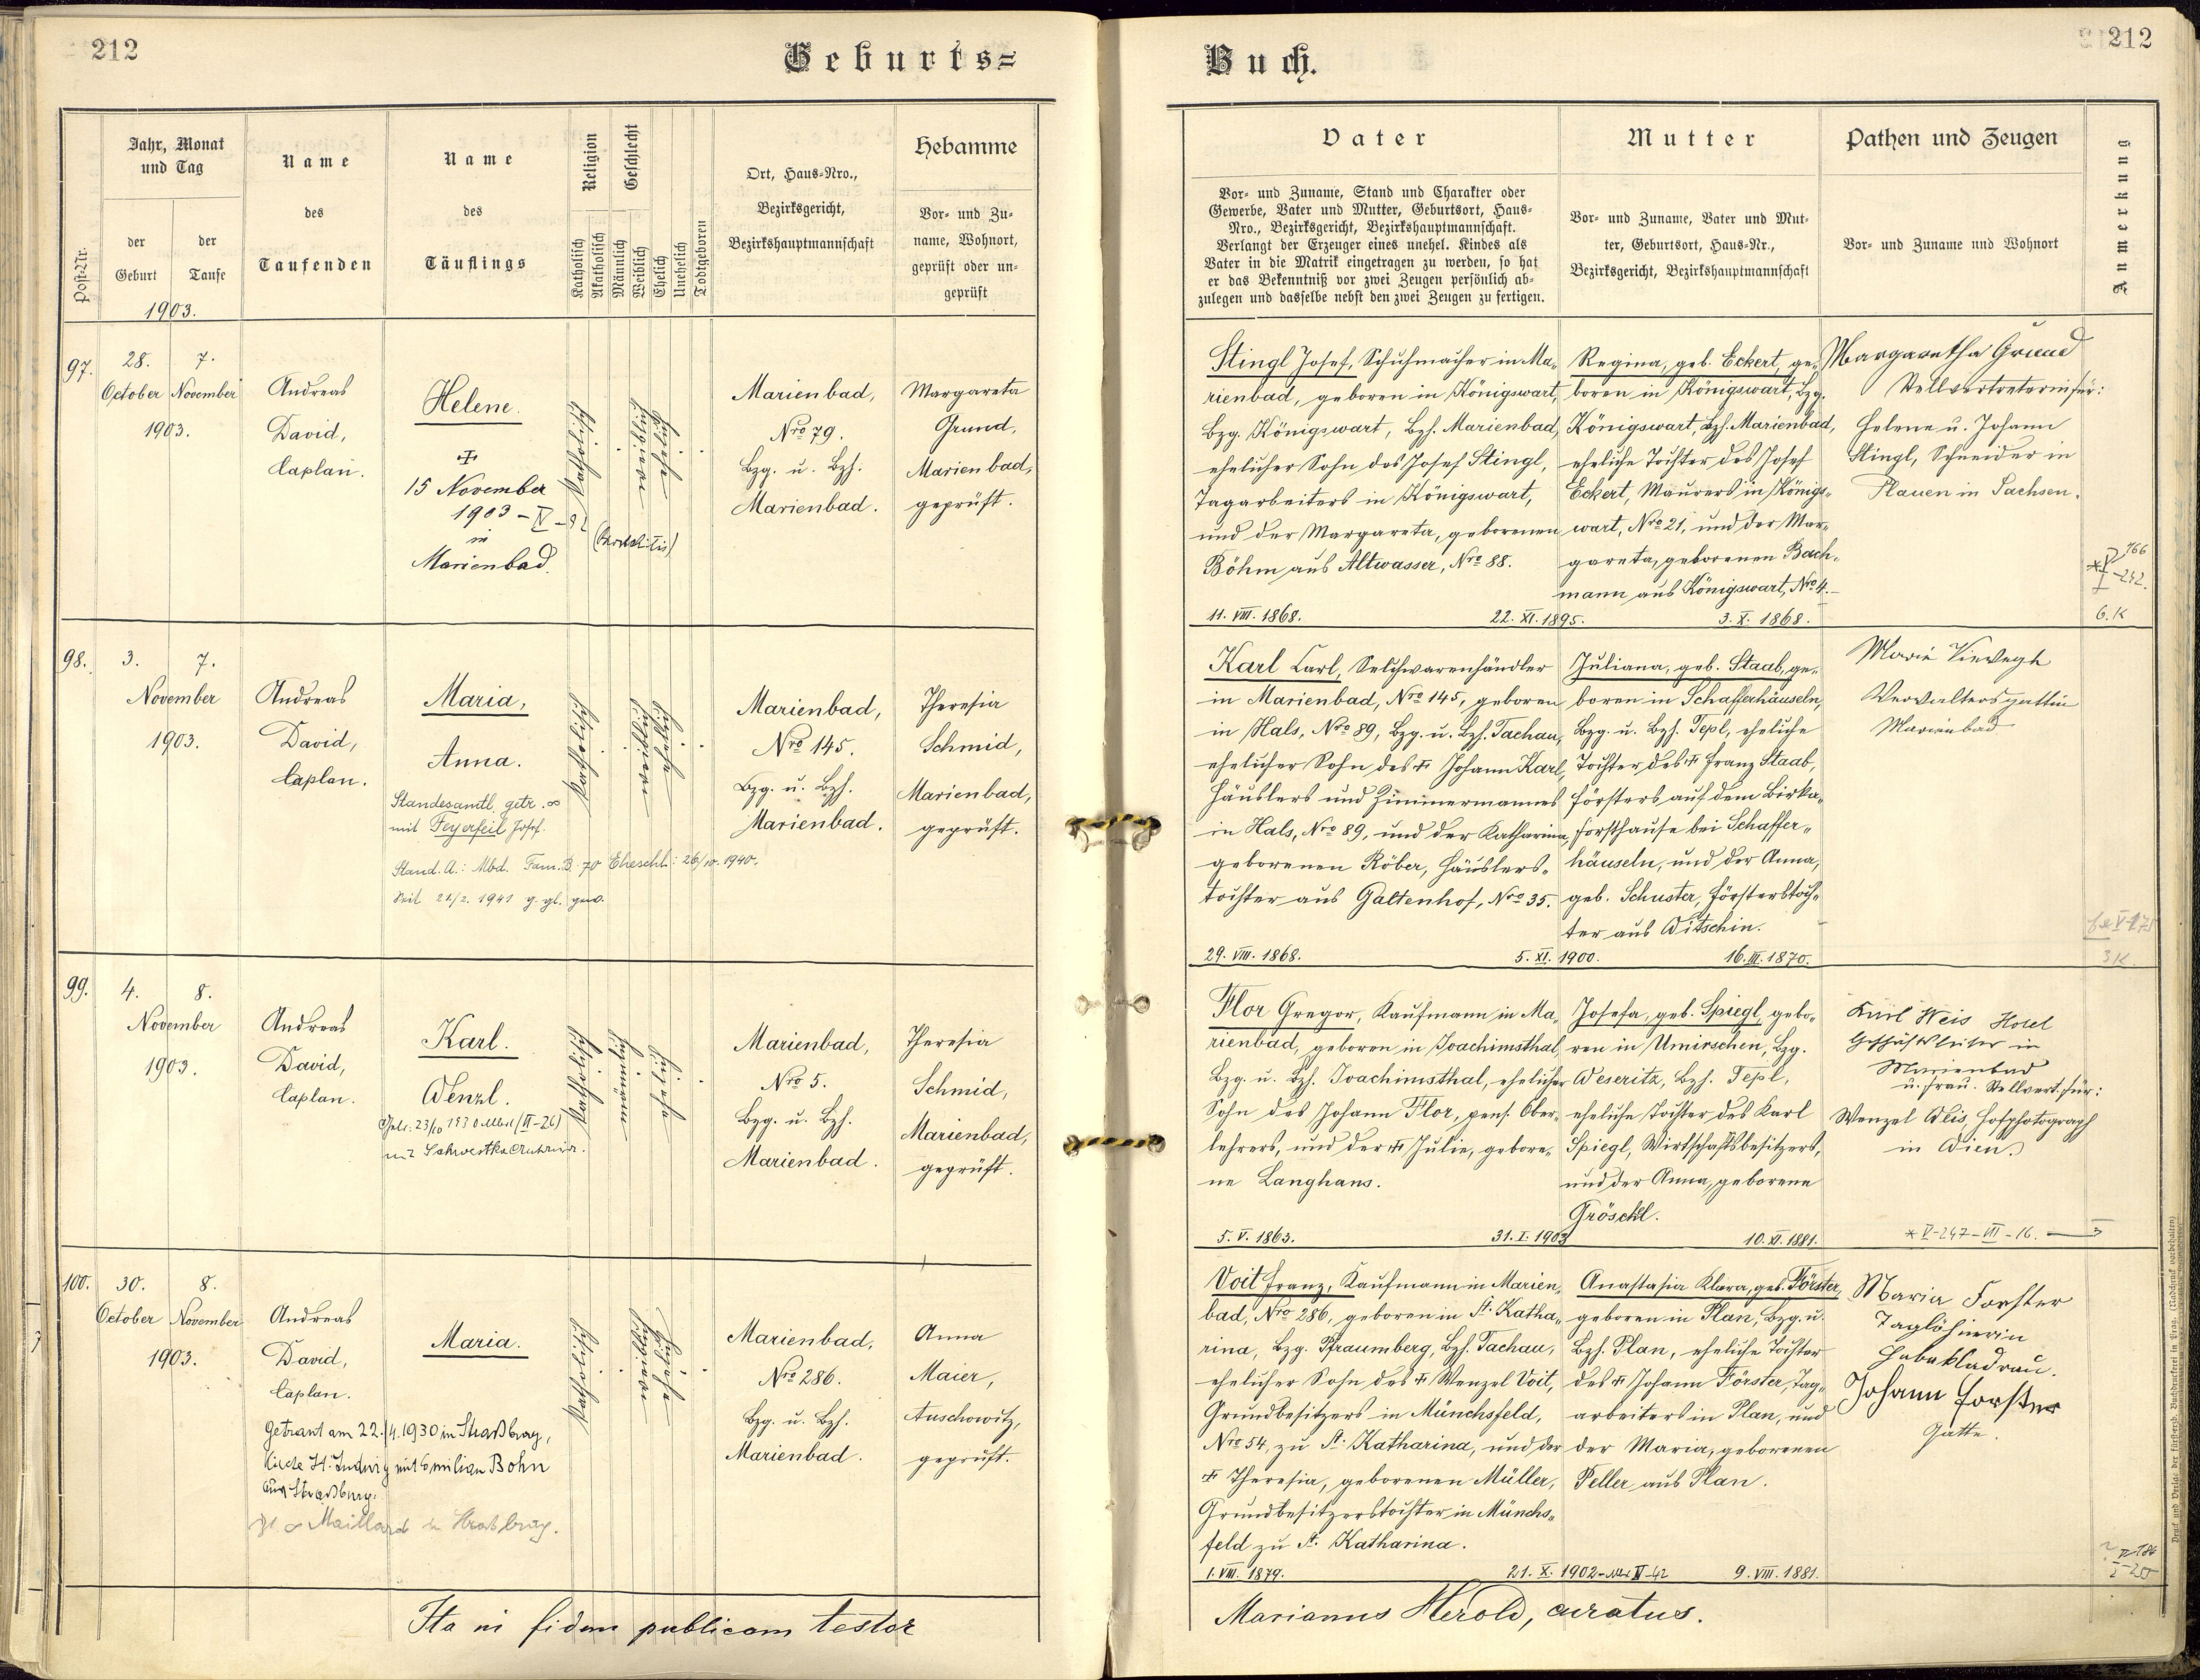 212
Geburts=
Buch.
212
Post-Nr.
Jahr, Monat
und Tag
der
Geburt
der
Taufe
1903.
Name
des
Taufenden
Name
des
Täuflings
Religion
Katholisch
Akatholisch
Geschlecht
Männlich
Weiblich
Ehelich
Unehelich
Todtgeboren
Ort, Haus-Nro.,
Bezirksgericht,
Bezirkshauptmannschaft
Hebamme
Vor- und Zu-
name, Wohnort,
geprüft oder un-
geprüft
Vater
Vor- und Zuname, Stand und Charakter oder
Gewerbe, Vater und Mutter, Geburtsort, Haus-
Nro., Bezirksgericht, Bezirkshauptmannschaft.
Verlangt der Erzeuger eines unehel. Kindes als
Vater in die Matrik eingetragen zu werden, so hat
er das Bekenntniß vor zwei Zeugen persönlich ab-
zulegen und dasselbe nebst den zwei Zeugen zu fertigen.
Mutter
Vor- und Zuname, Vater und Mut-
ter, Geburtsort, Haus-Nr.,
Bezirksgericht, Bezirkshauptmannschaft
Pathen und Zeugen
Vor- und Zuname und Wohnort
Anmerkung
97.
28.
October
7.
November
1903.
Andreas
David,
Caplan.
Helene.
15 November
1903 – IV – 92
in
Marienbad.
katholisch
weiblich
ehelich
Marienbad,
Nro 79.
Bzg. u. Bzh.
Marienbad.
Margareta
Grund,
Marienbad,
geprüft.
Stingl Josef, Schuhmacher in Ma-
rienbad, geboren in Königswart,
Bzg. Königswart, Bzh. Marienbad,
ehelicher Sohn des Josef Stingl,
Tagarbeiters in Königswart,
und der Margareta, geborenen
Böhm aus Altwasser, Nro 88.
11. VIII. 1868.
22. XI. 1895.
Regina, geb. Eckert, ge-
boren in Königswart, Bzg.
Königswart, Bzh. Marienbad,
eheliche Tochter des Josef
Eckert, Maurers in Königs-
wart, Nro 21, und der Mar-
gareta, geborenen Bach-
mann aus Königswart, Nro 4.
3. X. 1868.
Margaretha Grund
Stellvertreterin für:
Helene u. Johann
Stingl, Schneider in
Plauen in Sachsen.
6.K
98.
3.
7.
November
1903.
Andreas
David,
Caplan.
Maria,
Anna.
Standesamtl. getr. ∞
mit Feyerfeil Josef.
Stand. A.: Mbd. Fam. B. 70 Eheschl.: 26/10. 1940.
Seit 21/2. 1941 g. gl. gew.
katholisch
weiblich
ehelich
Marienbad,
Nro 145.
Bzg. u. Bzh.
Marienbad.
Theresia
Schmid,
Marienbad,
geprüft.
Karl Carl, Selchwarenhändler
in Marienbad, Nro 145, geboren
in Hals, Nro 89, Bzg. u. Bzh. Tachau,
ehelicher Sohn des † Johann Karl,
Häuslers und Zimmermannes
in Hals, Nro 89, und der Katharina,
geborenen Röber, Häuslers-
tochter aus Galtenhof, Nro 35.
29. VIII. 1868.
5. XI. 1900.
Juliana, geb. Staab, ge-
boren in Schafferhäuseln,
Bzg. u. Bzh. Tepl, eheliche
Tochter des † Franz Staab,
Försters auf dem Birka-
forsthause bei Schaffer-
häuseln, und der Anna,
geb. Schuster, Försterstoch-
ter aus Witschin.
16. III. 1870.
Marie Viewegh
Verwaltersgattin
Marienbad
3K.
99.
4.
8.
November
1903.
Andreas
David,
Caplan.
Karl.
Wenzl.
katholisch
männlich
ehelich
Marienbad,
Nro 5.
Bzg. u. Bzh.
Marienbad.
Theresia
Schmid,
Marienbad,
geprüft.
Flor Gregor, Kaufmann in Ma-
rienbad, geboren in Joachimsthal,
Bzg. u. Bzh. Joachimsthal, ehelicher
Sohn des Johann Flor, pens. Ober-
lehrers, und der † Julie, gebore-
ne Langhans.
5. V. 1863.
31. I. 1903
Josefa, geb. Spiegl, gebo-
ren in Umirschen, Bzg.
Weseritz, Bzh. Tepl,
eheliche Tochter des Karl
Spiegl, Wirtschaftsbesitzers,
und der Anna, geborene
Gröschl.
10. XI. 1881.
Karl Weis Hotel
Geschäftsleiter in
Marienbad
u. Frau. Stellvert. für:
Wenzel Weis, Hofphotograph
in Wien.
* V–247–VIII–16.
100.
30.
October
8.
November
1903.
Andreas
David,
Caplan.
Maria.
Getraut am 22./4. 1930 in Straßburg,
Kirche St. Ludwig mit Emilian Bohn
aus Straßburg.
katholisch
weiblich
ehelich
Marienbad,
Nro 286.
Bzg. u. Bzh.
Marienbad.
Anna
Maier,
Auschowitz,
geprüft.
Voit Franz, Kaufmann in Marien-
bad, Nro 286, geboren in St. Katha-
rina, Bzg. Pfraumberg, Bzh. Tachau,
ehelicher Sohn des † Wenzel Voit,
Grundbesitzers in Münchsfeld,
Nro 54, zu St. Katharina, und der
† Theresia, geborenen Müller,
Grundbesitzerstochter in Münchs-
feld zu St. Katharina.
1. VIII. 1879.
21. X. 1902
Anastasia Klara, geb. Förster,
geboren in Plan, Bzg. u.
Bzh. Plan, eheliche Tochter
des † Johann Förster, Tag-
arbeiters in Plan, und
der Maria, geborenen
Peller aus Plan.
9. VIII. 1881.
Maria Forster
Taglöhnerin
Johann Forster
Gatte.
Ita in fidem publicam testor
Marianus Herold, curatus.